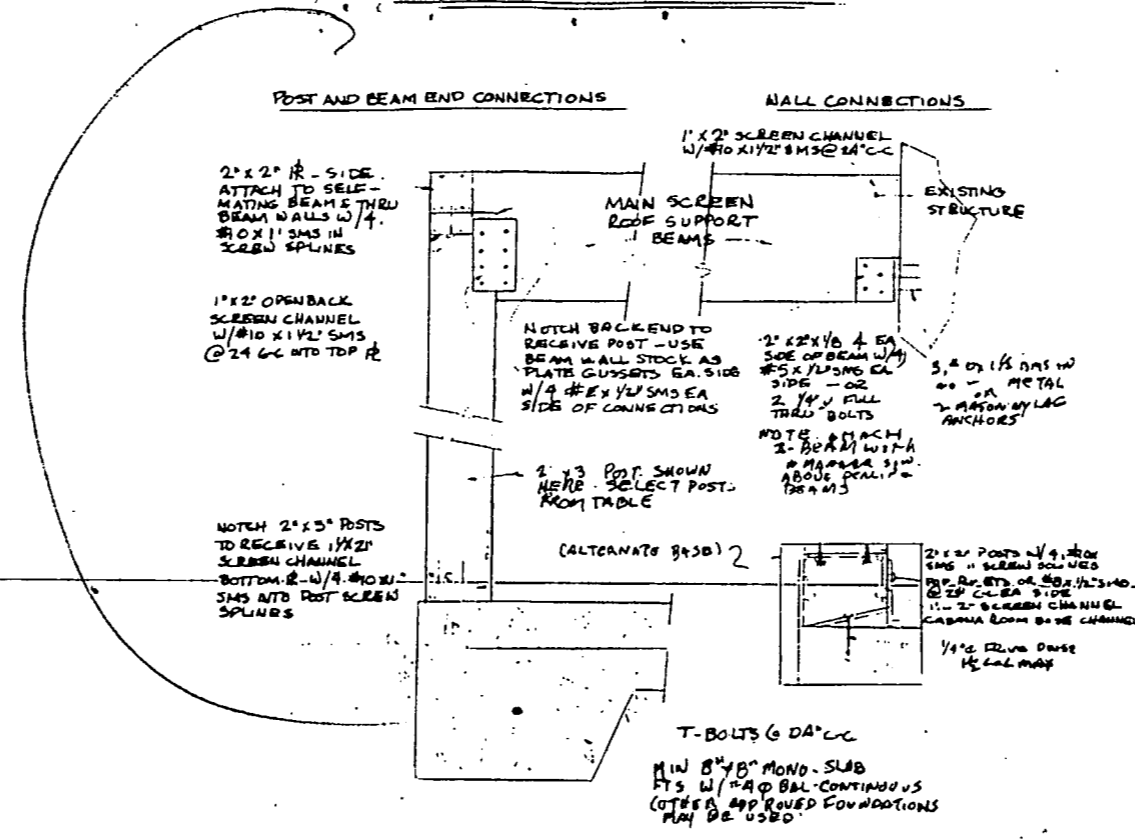 POST AND BEAM END CONNECTIONS
WALL CONNECTIONS
1" X 2" SCREEN CHANNEL
W/#10 X 1 1/2" SMS @ 24" C-C
2" X 2" PL - SIDE.
ATTACH TO SELF-
MATING BEAMS THRU
BEAM WALLS W/4.
#10 X 1" SMS IN
SCREW SPLINES
MAIN SCREEN
ROOF SUPPORT
BEAMS
EXISTING
STRUCTURE
1" X 2" OPEN BACK
SCREEN CHANNEL
W/#10 X 1 1/2" SMS
@ 24 C-C INTO TOP PL
NOTCH BACK END TO
RECEIVE POST - USE
BEAM WALL STOCK AS
PLATE GUSSETS EA. SIDE
W/4 #8 X 1/2" SMS EA
SIDE OF CONNECTIONS
2" X 2" X 1/8 EA
SIDE OF BEAM W/4
X 1/2" SMS EA
SIDE - OR
2 1/4" FULL
THRU-BOLTS
METAL
OR
MASONRY LAG
ANCHORS
NOTE
BEAM WITH
ABOVE
BEAMS
2" X 3 POST SHOWN
HERE - SELECT POST
FROM TABLE
NOTCH 2" X 3" POSTS
TO RECEIVE 1" X 2"
SCREEN CHANNEL
BOTTOM PL - W/4 #10 X 1"
SMS INTO POST SCREW
SPLINES
(ALTERNATE BASE) 2
2" X 2" POSTS W/4 #10 X
SMS SCREW SPLINES
OR #8 X 1/2" SMS
@ 24" EA SIDE
SCREEN CHANNEL
CABANA ROOM BASE CHANNEL
1/4"
MAX
T-BOLTS @ C-C
MIN 8" X 8" MONO-SLAB
W/ #4 CONTINUOUS
(OTHER APPROVED FOUNDATIONS
MAY BE USED